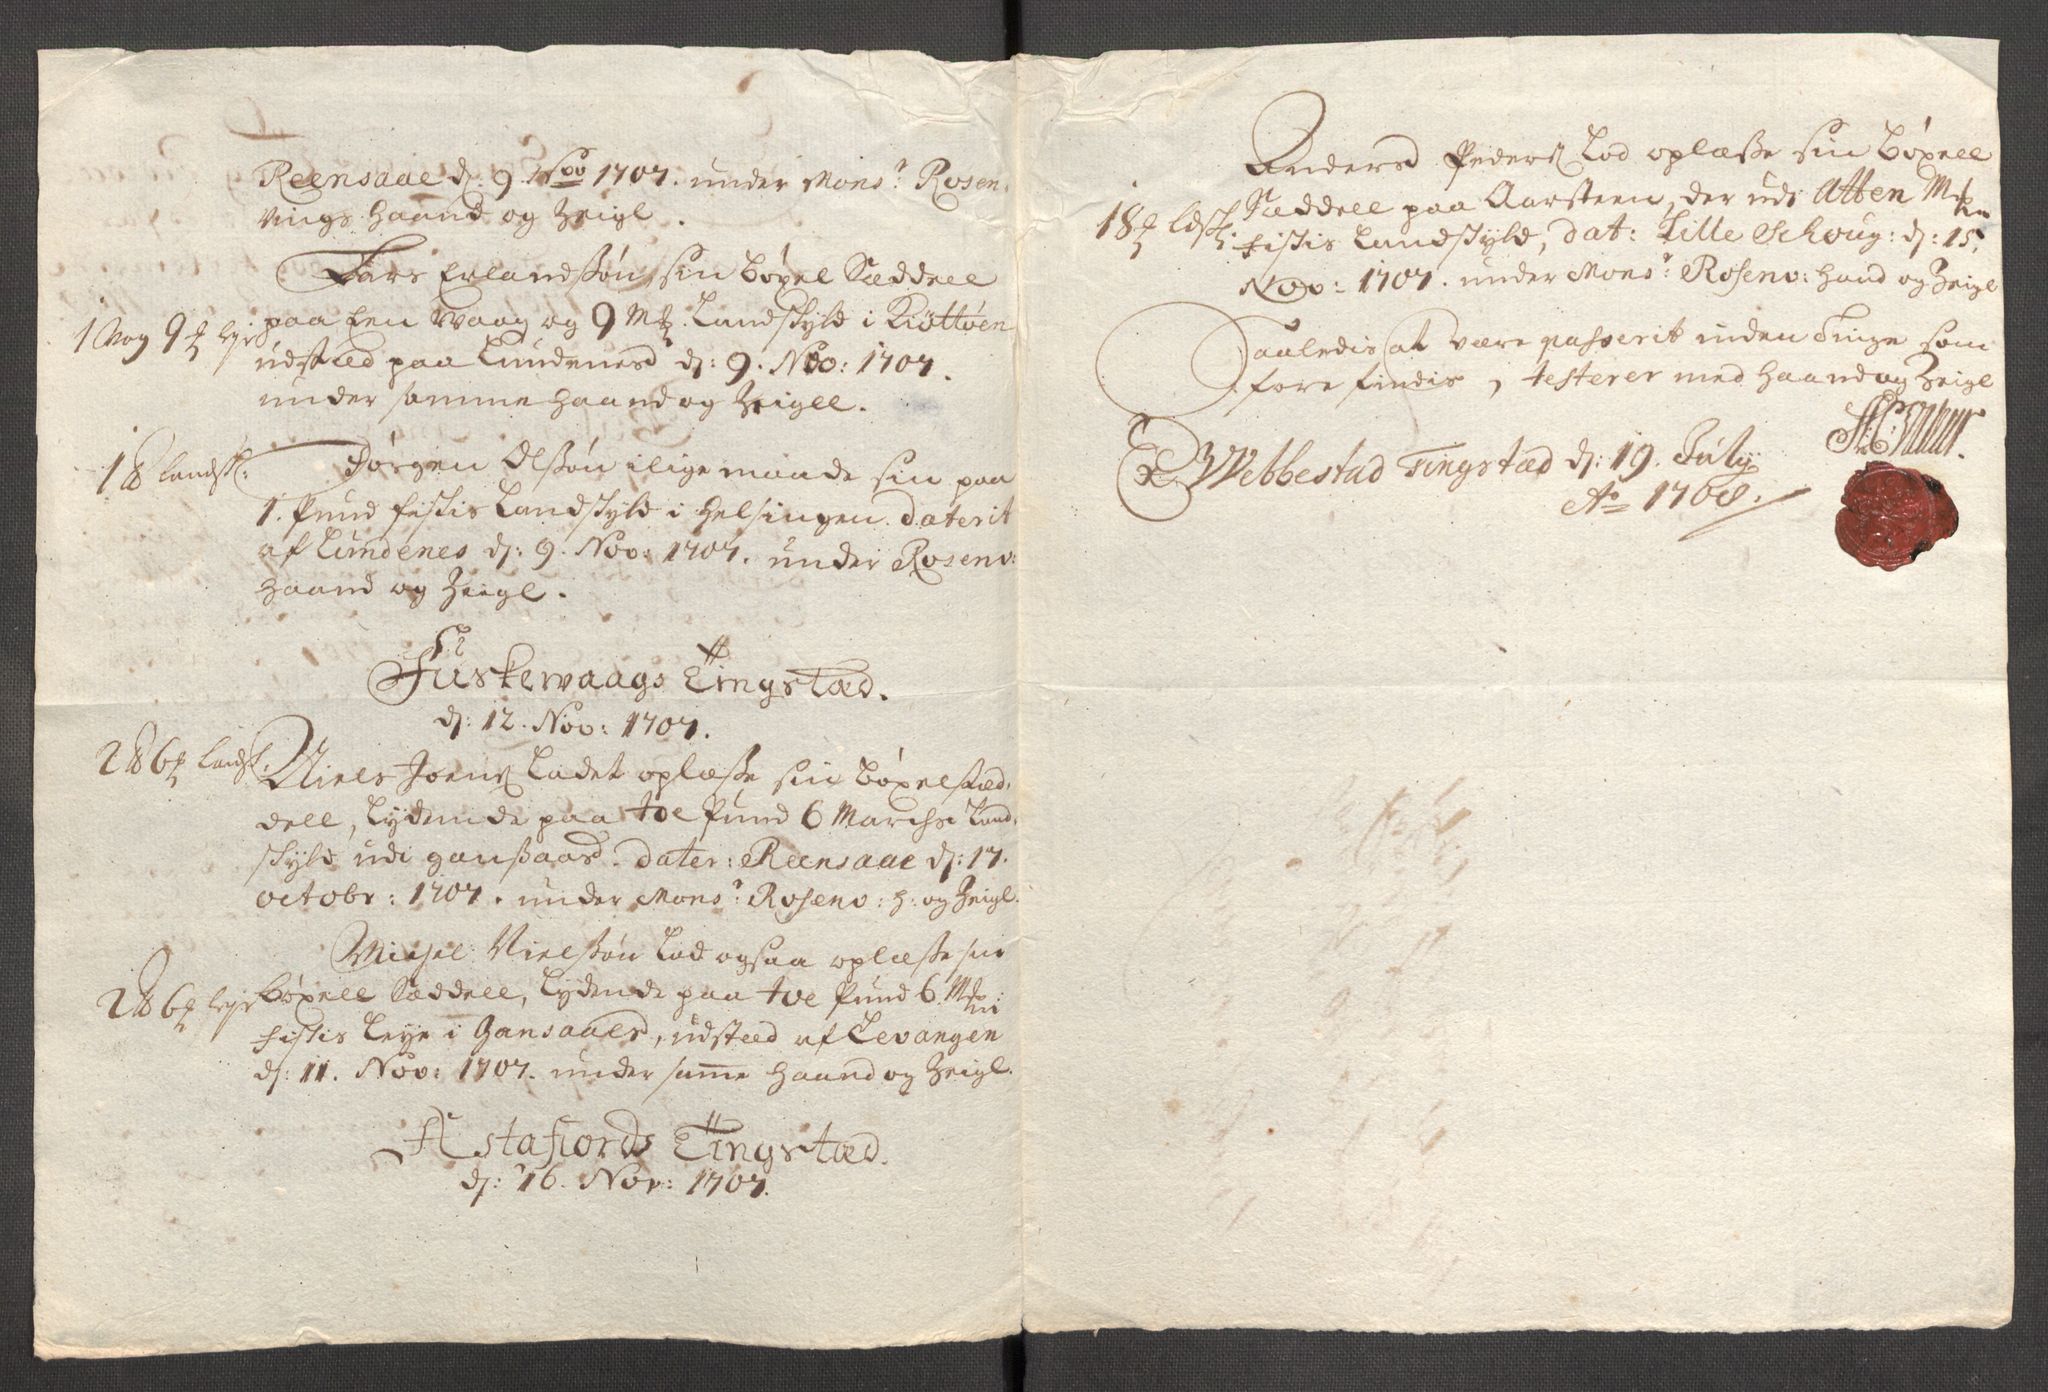 Reensaae d: 9 Nov 1707. under Mons:r Rosen-
vings haand og Zeigl.
Lars Erlandssøn, sin böxel Sæddell
1 Vog 9 paa Een Waag og 9 Mk. Landskyld i Kiöttöen
udstæd paa Lundenes d: 9. Nov: 1707.
under samme haand og Zeigll.
1 Landsk: Jørgen Olssøn i lige maade sin paa
1. Pund fiskis Landskyld i Helsingen. daterit
af Lundenes d: 9. Nov: 1707. under Rosenv:
haand og Zeigl.
Fuskewaags Tingstæd.
d: 12. Nov: 1707.
2 6 Landsk: Niels Joens Ladet oplæsse sin böxelsæd-
dell, lydende paa toe Pund 6 March: Land-
skyld udi ganssaard. dater: Reensaae d: 17.
octobr: 1707. under Mons:r Rosenv: H: og Zeigl.
Michel Nielssøn Lod ogsaa oplæsse sin
2 6 Leye böxell Sæddell, lydende paa toe Pund 6 Mk
fiskis Leye i Gansaaes, udstæd af Levangen
d: 11. Nov: 1707. under samme haand og Zeigl.
Astafiords Tingstæd.
d: 16. Nov: 1707.
Anders Peders Lod oplæsse sin böxell
18 Ldsk: Sæddell paa Aarsteen, der udi Atten Mk
fiskis Landskyld, dat: Lille Schoug: d: 15.
Nov: 1707. under Mons:r Rosenv: Hand og Zeigl
Saaledis at være passerit inden Tinge som
fore findis, testerer med Haand og Zeigl
Webbestad Tingstæd d: 19. July
Ao 1708.